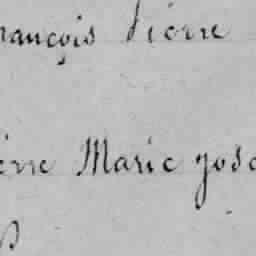 rançois Pierre
erre Marie Jose